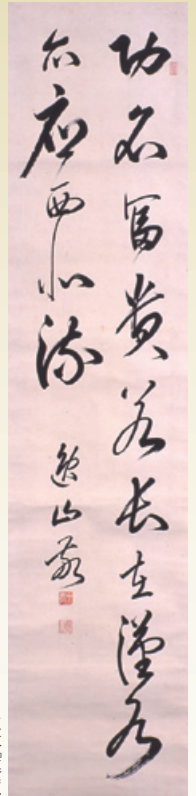 功名富貴若長在漢水
亦應西北流
逸山敬